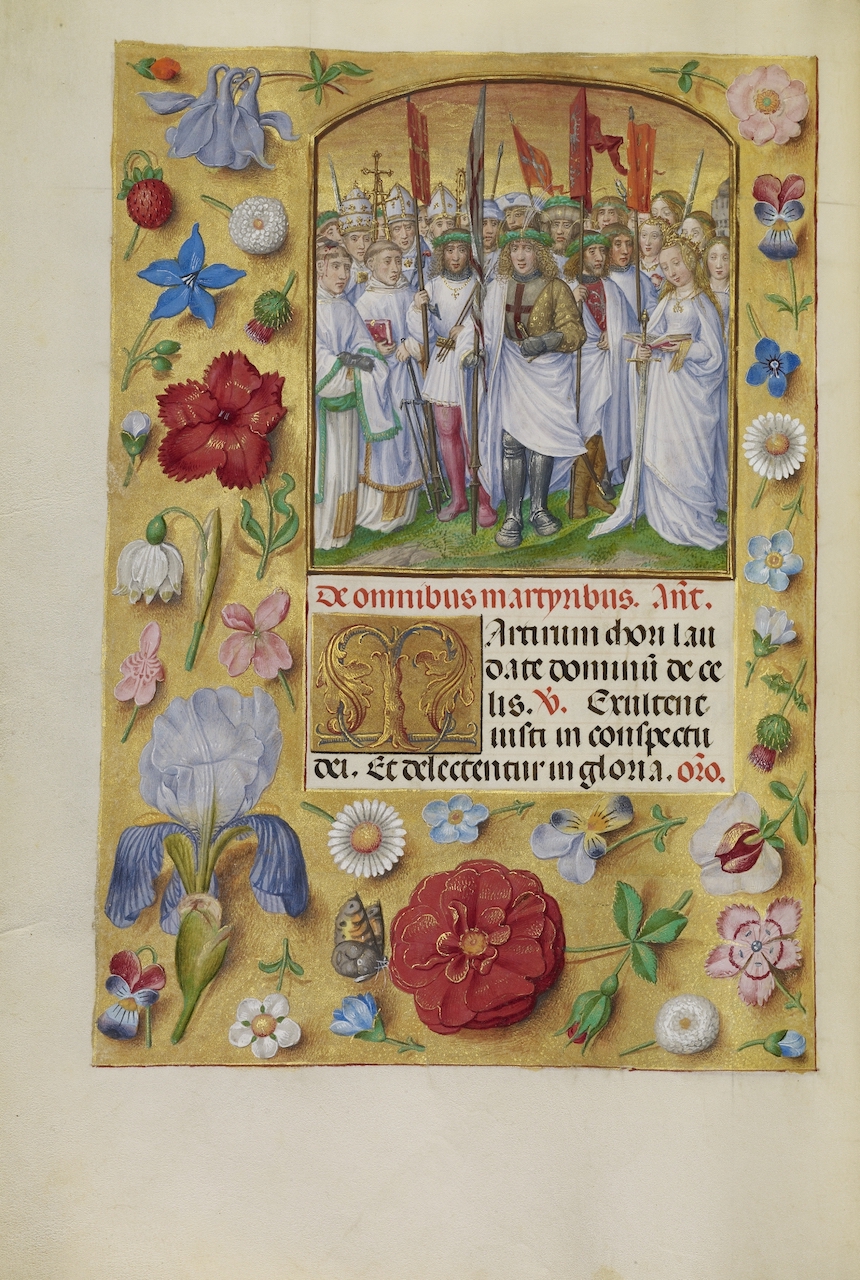 De omnibus martyribus. Añt.
Martirum chori lau
date dominũ de ce
lis. V. Exultent
iusti in conspectu
dei. Et delectentur in gloria. oro.